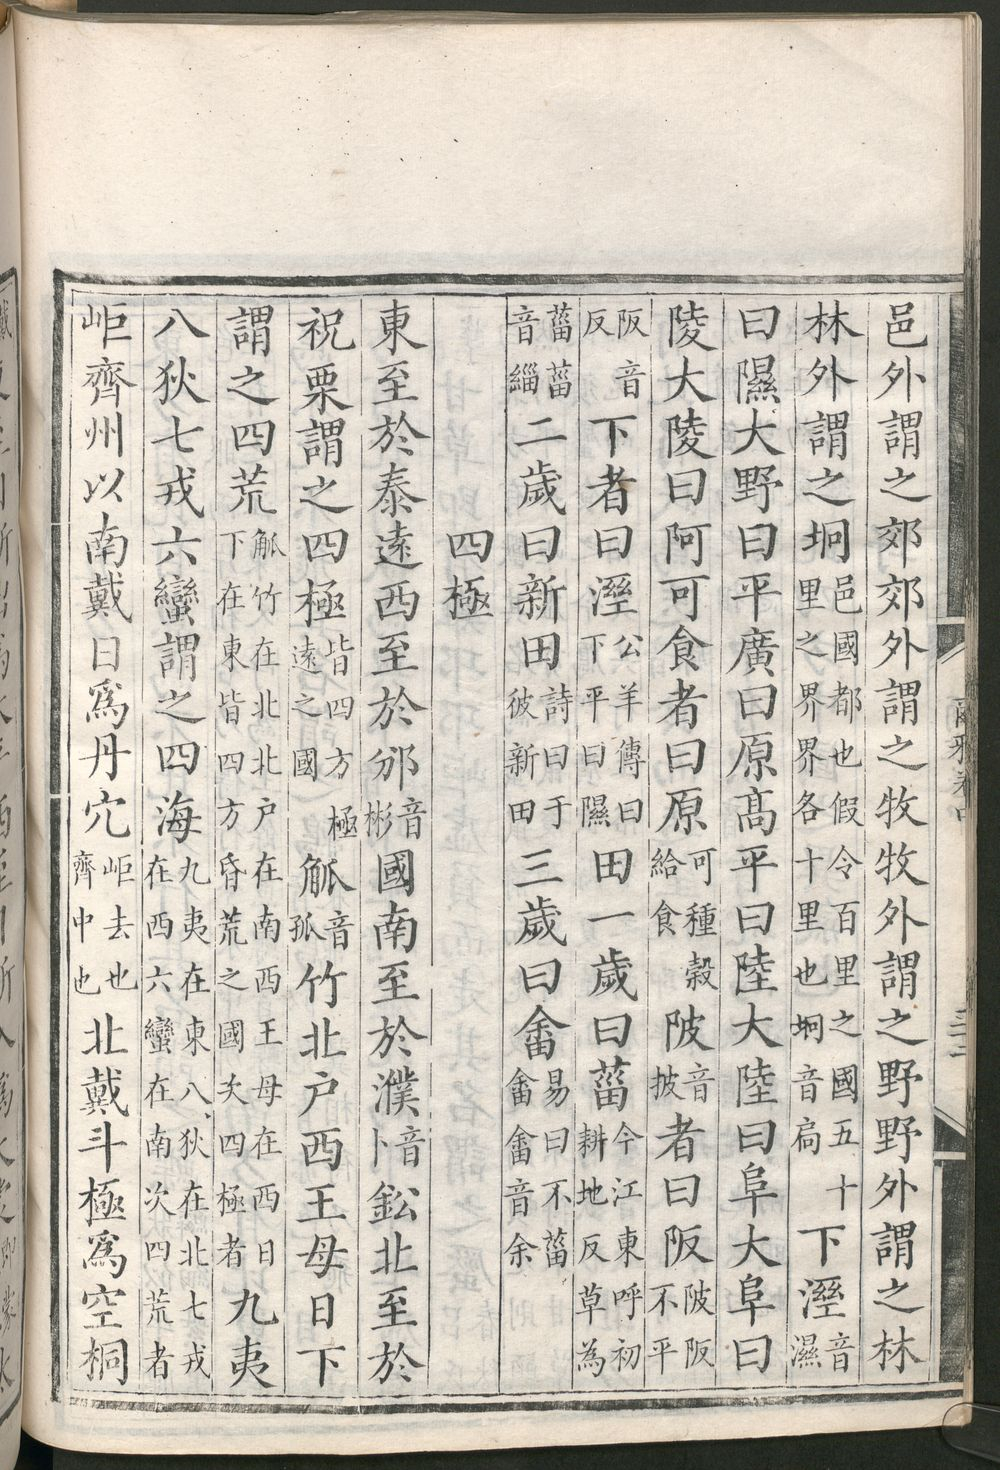 邑外謂之郊郊外謂之牧牧外謂之野野外謂之林
林外謂之坰邑國都也假令百里之國五十里之界界各十里也坰音扃下溼音濕
曰隰大野曰平廣曰原高平曰陸大陸曰阜大阜曰
陵大陵曰阿可食者曰原可種穀給食陂音披者曰阪陂阪不平
阪音反下者曰溼公羊傳曰下平曰隰田一歲曰菑今江東呼初耕地反草為
菑菑音緇二歲曰新田詩曰于彼新田三歲曰畬易曰不菑畬畬音余
四極
東至於泰遠西至於邠音彬國南至於濮音卜鈆北至於
祝栗謂之四極皆四方極遠之國觚音孤竹北户西王母日下
謂之四荒觚竹在北北户在南西王母在西日下在東皆四方昏荒之國次四極者九夷
八狄七戎六蠻謂之四海九夷在東八狄在北七戎在西六蠻在南次四荒者
岠齊州以南戴日爲丹穴岠去也齊中也北戴斗極爲空桐